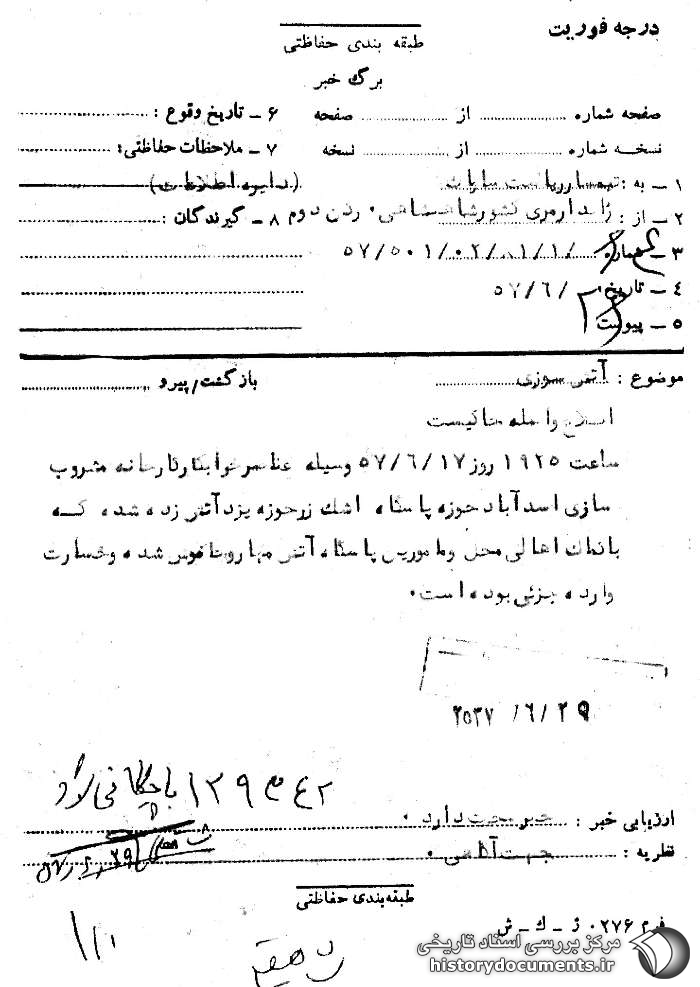 درجه فوریت
طبقه بندی حفاظتی
برگ خبر
صفحه شماره از صفحه ۶ ـ تاریخ وقوع :
نسخه شماره از نسخه ۷ ـ ملاحظات حفاظتی:
۱ ـ به : تیمسار ریاست ساواک (دایره اطلاعات)
۲ ـ از : ژاندارمری کشور شاهنشاهی رکن دوم ۸ ـ گیرندگان :
۳ ـ شماره ۵۷/۵۰۱/۰۲/
۴ ـ تاریخ ۵۷/۶/
۵ ـ پیوست
موضوع : آتش سوزی بازگشت/پیرو
اطلاع واصله حاکیست
ساعت ۱۹۲۵ روز ۵۷/۶/۱۷ وسیله عناصر خرابکار کارخانه مشروب
سازی اسدآباد حوزه پاسگاه اشکذر حوزه یزد آتش زده شده که
با کمک اهالی محل و مامورین پاسگاه آتش مهار و خاموش شده و خسارت
وارده جزئی بوده است.
۲۵۳۷ /۶/۲۹
بایگانی گردد
ارزیابی خبر : خبر صحت دارد .
نظریه : جهت آگاهی .
طبقه‌بندی حفاظتی
فرم ۰۲۷۶ ژ ـ ک ـ ش
مرکز بررسی اسناد تاریخی
historydocuments.ir